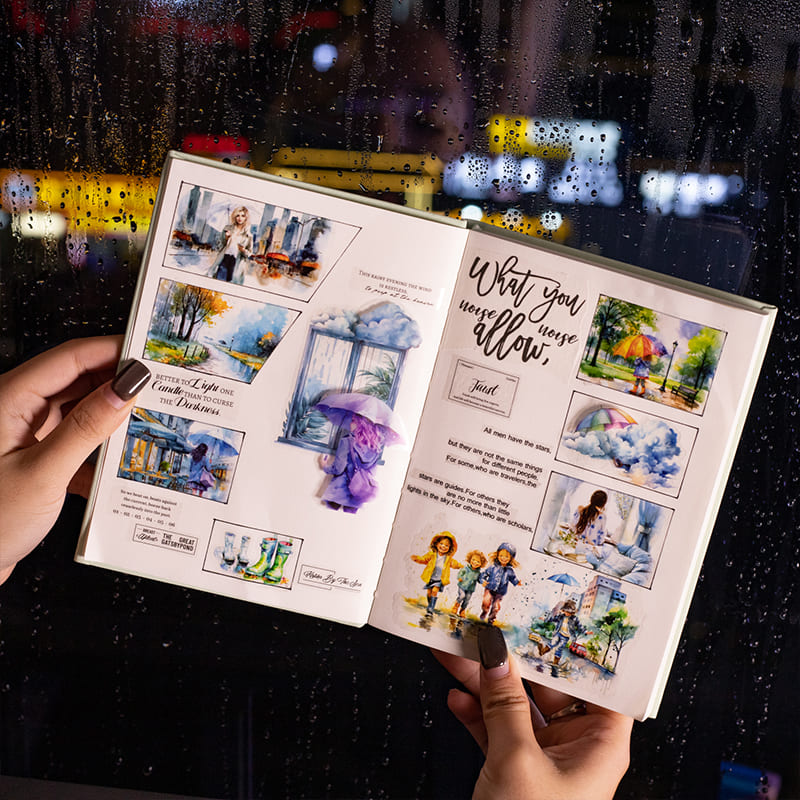 THIS RAINY EVENING THE WIND
IS RESTLESS,
BETTER TO Light ONE
Candle THAN TO CURSE
THE Darkness.
So we beat on, boats against
the current, borne back
ceaselessly into the past.
01 - 02 - 03 - 04 - 05 - 06
THE GREAT
GATSBYPOND
By The Sea
What you
noise noise
allow,
Faust
All men have the stars,
but they are not the same things
for different people.
For some,who are travelers,the
stars are guides.For others they
are no more than little
lights in the sky.For others,who are scholars,